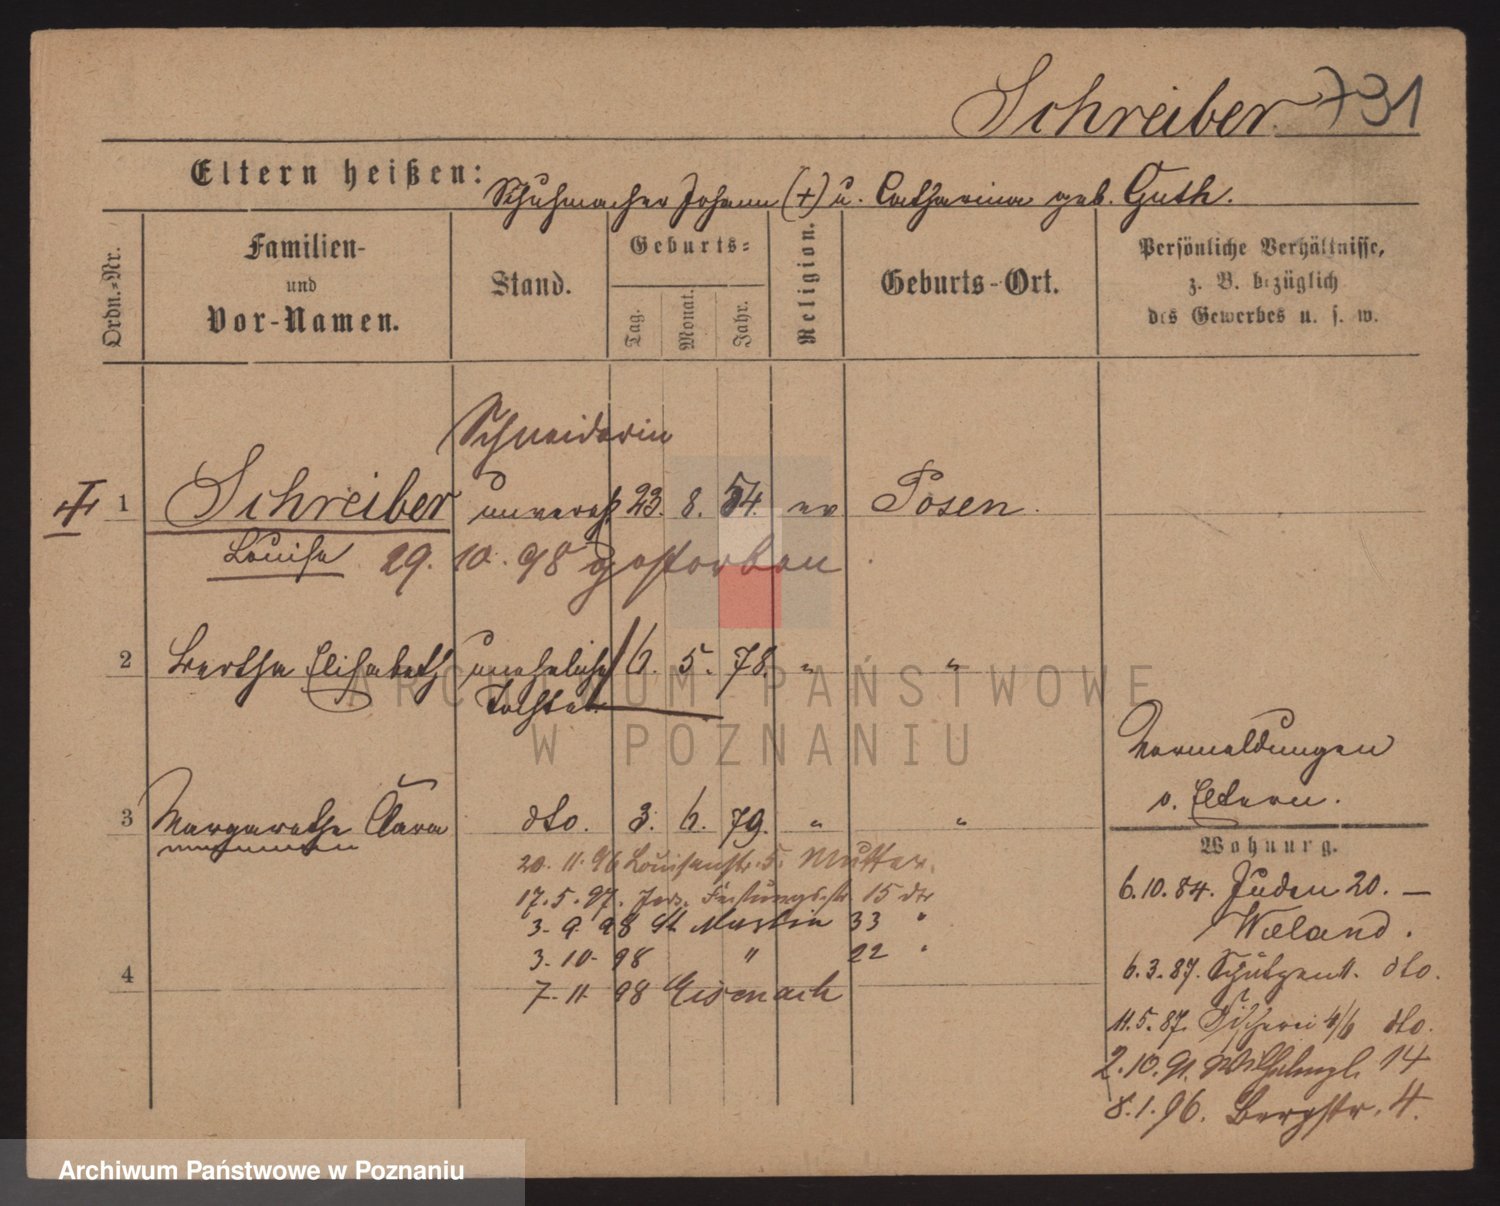 Schreiber. 731
Eltern heißen: Schuhmacher Johann (+) u. Catharina geb. Guth.
Ordn.-Nr.
Familien-
und
Vor-Namen.
Stand.
Geburts-
Tag.
Monat.
Jahr.
Religion.
Geburts-Ort.
Persönliche Verhältnisse,
z. B. bezüglich
des Gewerbes u. s. w.
Schneiderin
1 Schreiber unvereh 23. 8. 54. ev Posen.
Louise 29. 10. 98 gestorben
2 Bertha Elisabeth uneheliche 6. 5. 78. " "
Tochter
Vermeldungen
v. Eltern.
3 Margarethe Clara dto. 3. 6. 79. " "
Wohnung.
20. 11. 96 Louisenstr. 5. Mutter.
6. 10. 84. Juden 20. —
17. 5. 97. Festungsstr 15 dto
Wieland.
3. 9. 98 St Martin 33 "
3. 10. 98 " 22 "
6. 3. 87. Schützenstr. dto.
4
7. 11. 98 Eisenach
11. 5. 87. Fischerei 4/6 dto.
2. 10. 91. Wilhelmspl. 14
8. 1. 96. Bergstr. 4.
ARCHIWUM PAŃSTWOWE
W POZNANIU
Archiwum Państwowe w Poznaniu